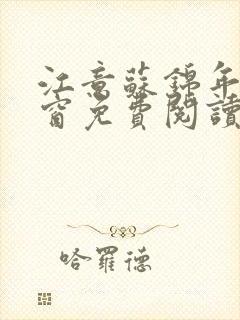 江意蘇錦年
窗免費閱讀
哈羅德